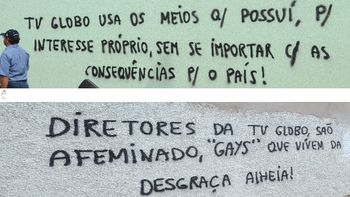 TV GLOBO USA OS MEIOS Q/ POSSUÍ, P/
INTERESSE PRÓPRIO, SEM SE IMPORTAR C/ AS
CONSEQUÊNCIAS P/ O PAÍS!
DIRETORES DA TV GLOBO, SAÕ
AFEMINADO, "GAYS" QUE VIVEM DA
DESGRAÇA ALHEIA!